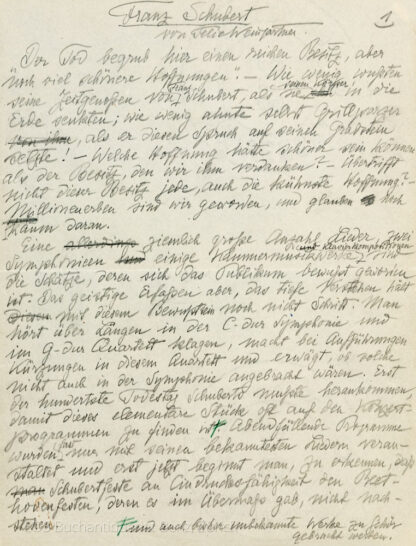 Franz Schubert 1
von Felix Weingartner.
Der Tod begrub hier einen reichen Besitz, aber
noch viel schönere Hoffnungen! – Wie wenig wussten
seine Zeitgenossen von Franz Schubert, als sie seinen Körper in die
Erde senkten; wie wenig ahnte selbst Grillparzer
von ihm, als er diesen Spruch auf seinen Grabstein
setzte! – Welche Hoffnung hätte schöner sein können
als der Besitz, den wir ihm verdanken? – Übertrifft
nicht dieser Besitz jede, auch die kühnste Hoffnung?
Millionenerben sind wir geworden, und glauben noch
kaum daran.
Eine allerdings ziemlich große Anzahl Lieder, zwei
Symphonien einige Kammermusikwerke und Klavierkompositionen sind
die Schätze, deren sich das Publikum bewusst geworden
ist. Das geistige Erfassen aber, das tiefe Verstehen hält
mit diesem Bewusstsein noch nicht Schritt. Man
hört über Längen in der C-dur Symphonie und
im G-dur Quartett klagen, macht bei Aufführungen
Kürzungen in diesem Quartett und erwägt, ob solche
nicht auch in der Symphonie angebracht wären. Erst
der hundertste Todestag Schuberts musste herankommen,
damit dieses elementare Stück oft auf den Konzert-
programmen zu finden ist. Abendfüllende Programme
wurden fast nur mit seinen bekanntesten Liedern veran-
staltet und erst jetzt beginnt man, zu erkennen, dass
Schubertfeste an Eindrucksfähigkeit den Beet-
hovenfesten, deren es im Übermaß gab, nicht nach-
stehen. und auch bisher unbekannte Werke zu Gehör
gebracht werden.